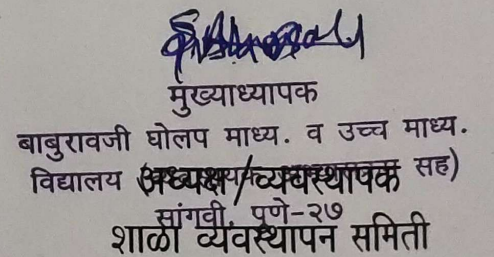 मुख्याध्यापक
बाबुरावजी घोलप माध्य. व उच्च माध्य.
विद्यालय सह)
अध्यक्ष / व्यवस्थापक
सांगवी, पुणे-२७
शाळा व्यवस्थापन समिती